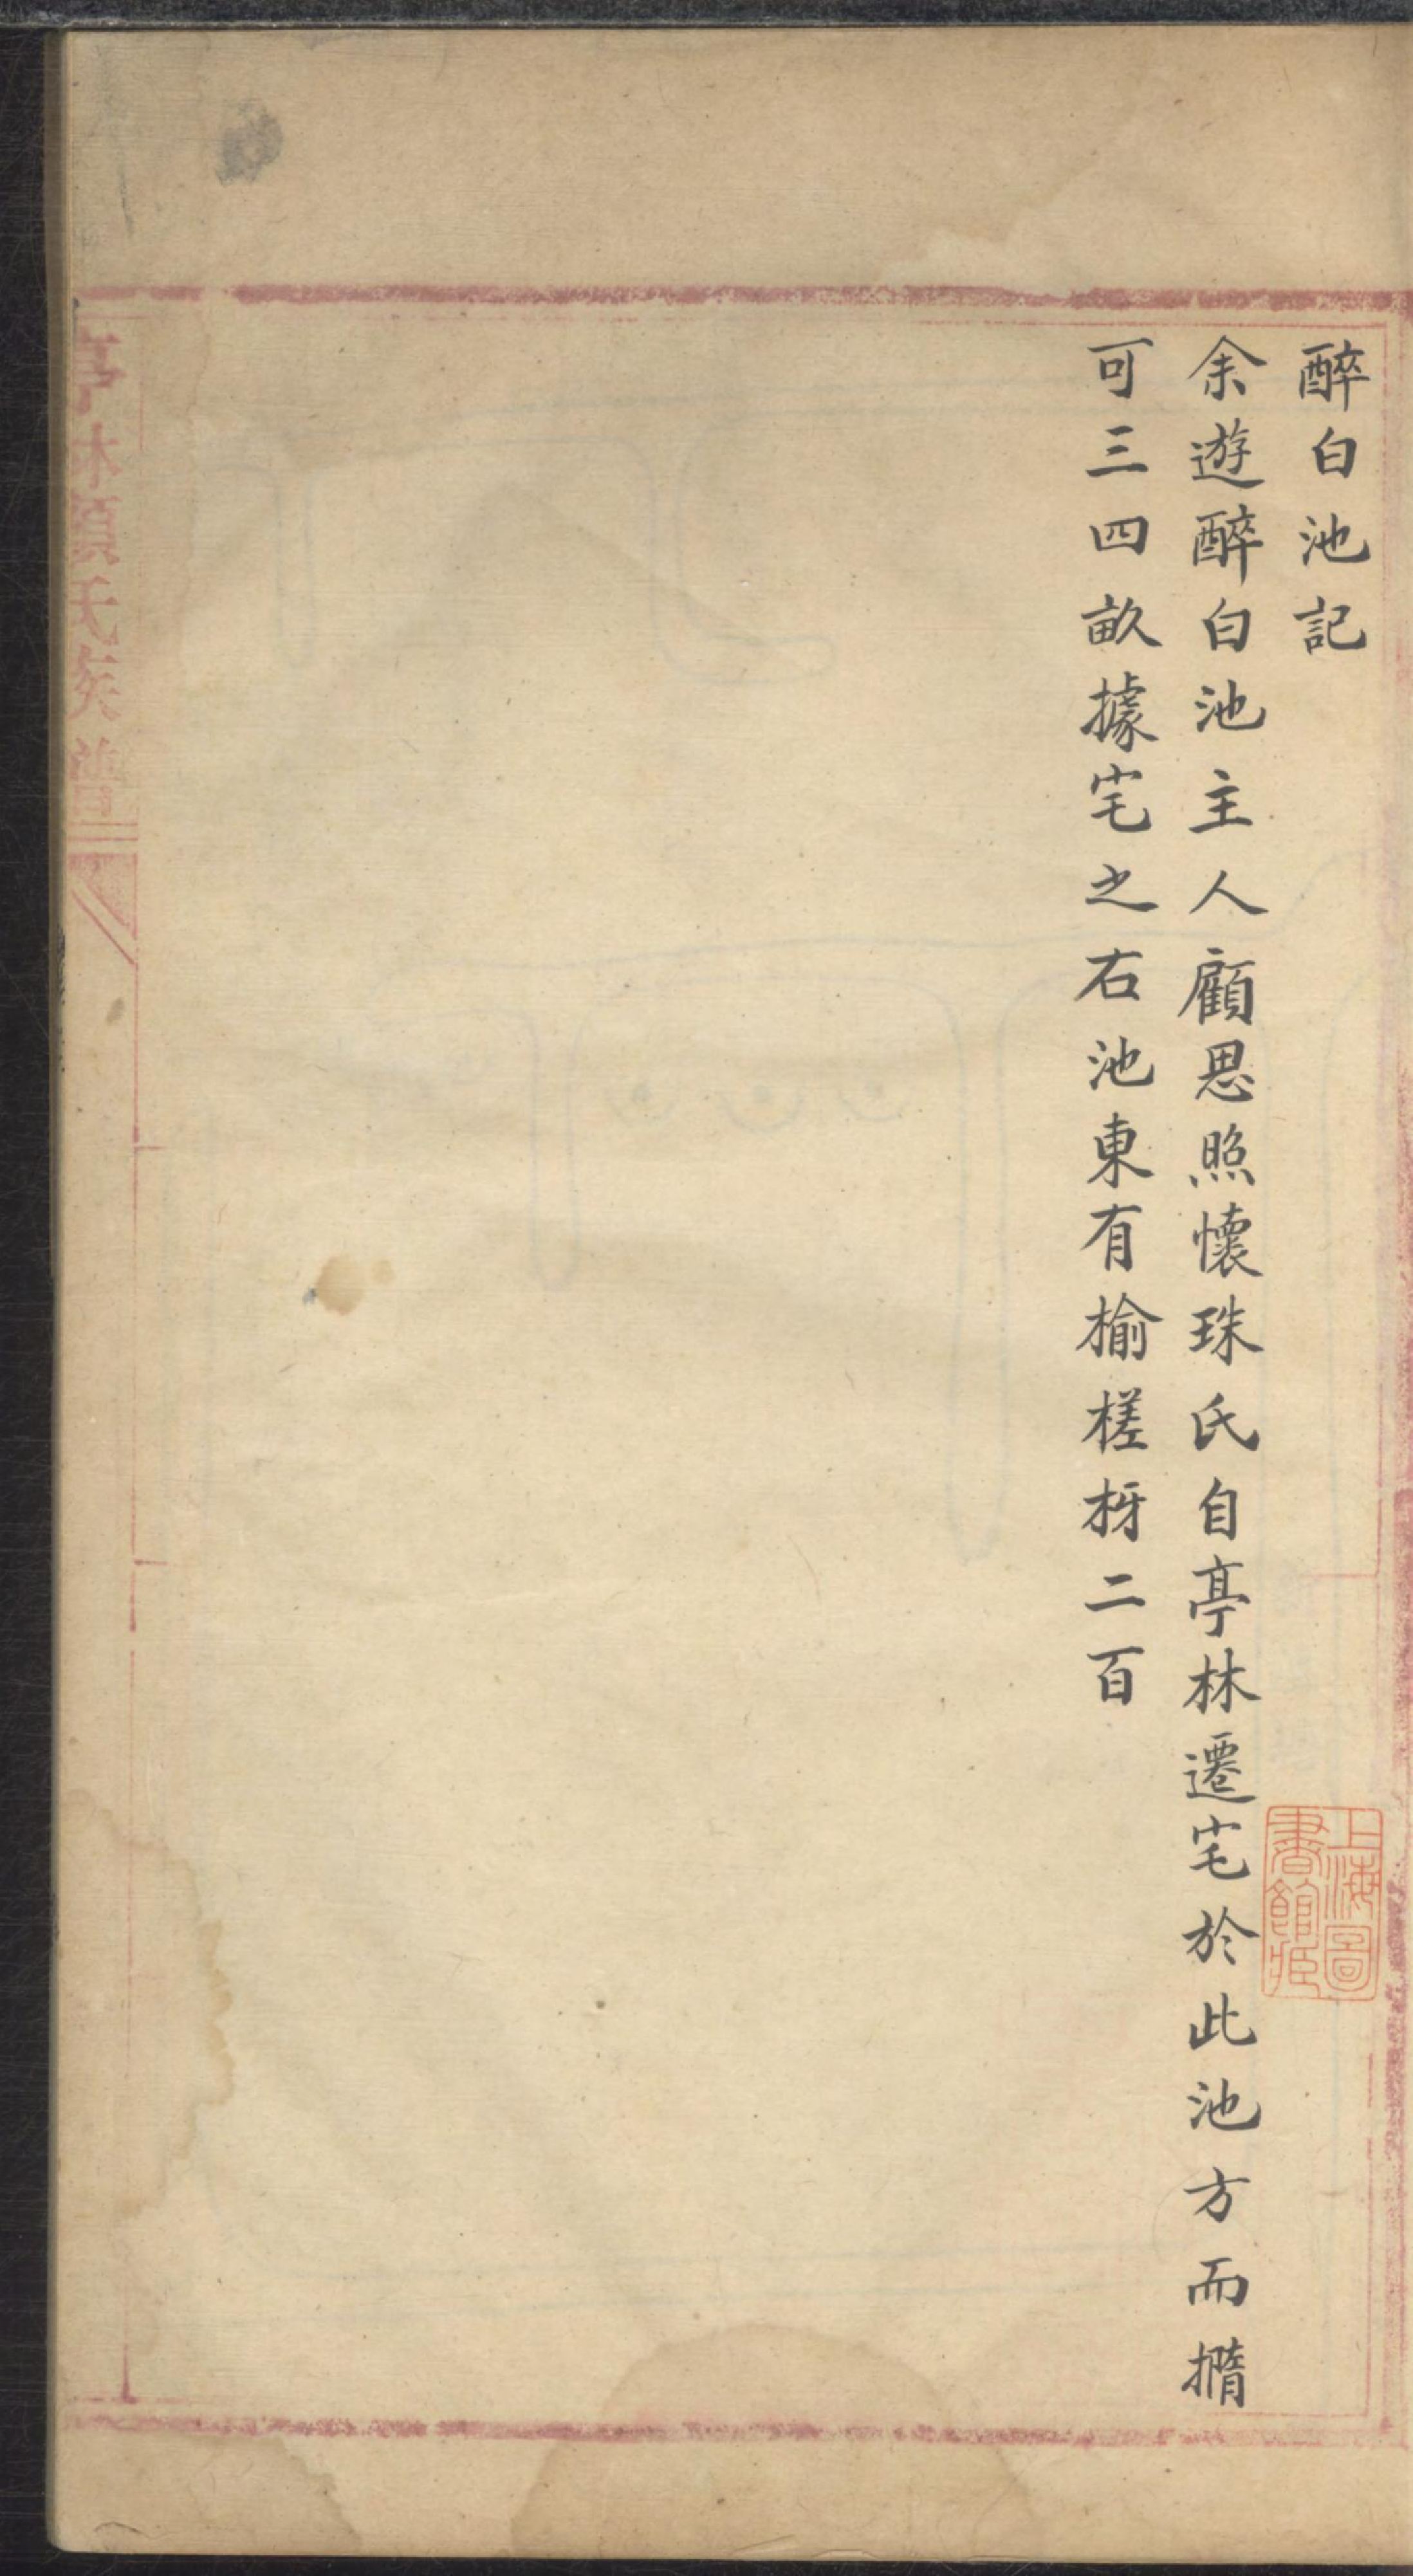 醉白池記
余遊醉白池主人顧思照懷珠氏自亭林遷宅於此池方而撱
可三四畝據宅之右池東有榆槎枒二百
上海圖
書館臧
亭林顧氏族譜